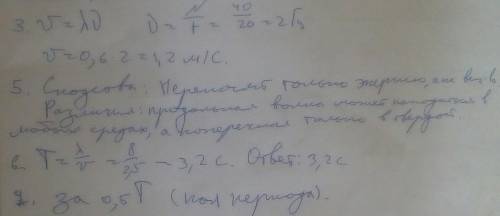 3. v = λν   ν = N/t = 40/20 = 2 Гц
v = 0,6 · 2 = 1,2 м/с.
5. Сходства: Переносят только энергию, а не вещ-в.
Различия: продольная волна может находиться в
любых средах, а поперечная только в твёрдой.
6. T = λ/v = 8/2,5 — 3,2 с. Ответ: 3,2 с
7. за 0,5 T (пол периода).